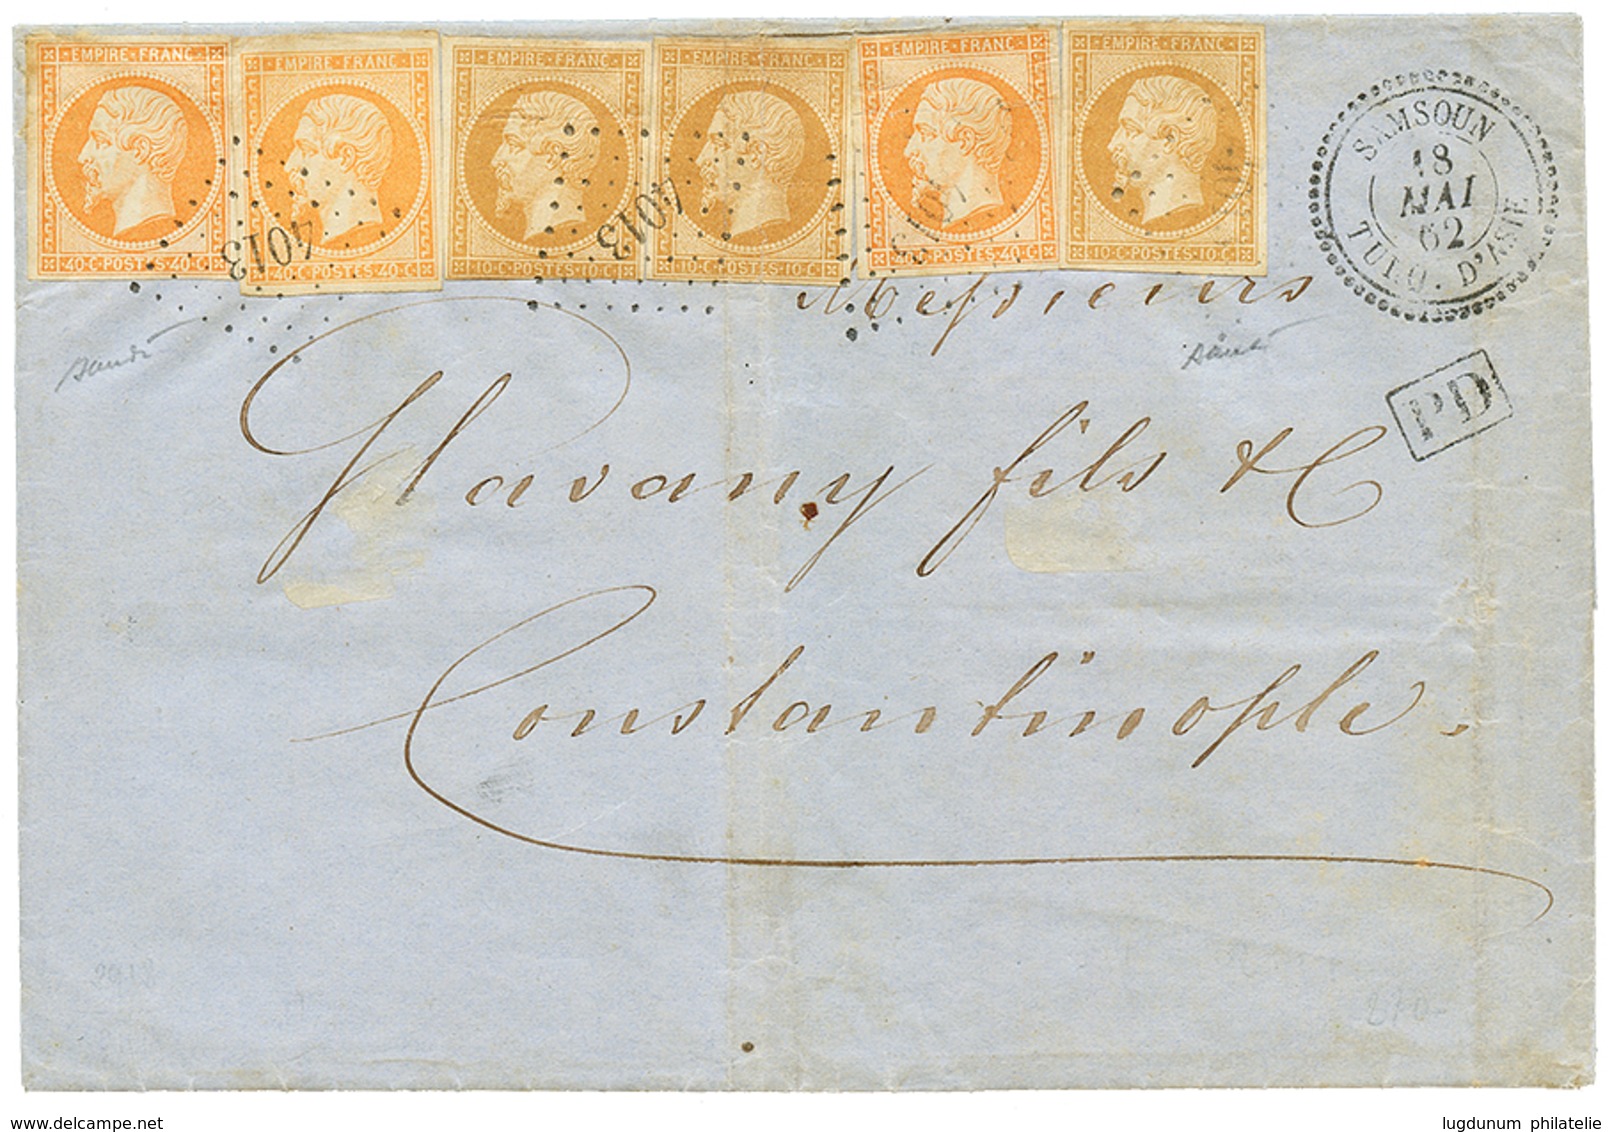 EMPIRE FRANC EMPIRE FRANC EMPIRE FRANC EMPIRE FRANC EMPIRE FRANC EMPIRE FRANC
40·C·POSTES·40·C· 40·C·POSTES·40·C· 10·C·POSTES·10·C· 10·C·POSTES·10·C· 40·C·POSTES·40·C· 10·C·POSTES·10·C·
4013 4013 4013
SAMSOUN
18
MAI
62
TURQ. D'ASIE
PD
Messieurs
Glavany fils & C
Constantinople.
delcampe.net
lugdunum philatelie